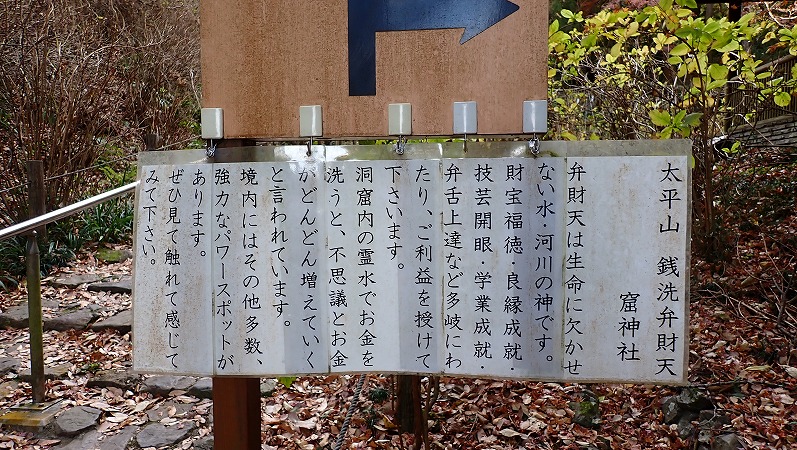 太平山 銭洗弁財天
窟神社
弁財天は生命に欠かせ
ない水・河川の神です。
財宝福徳・良縁成就・
技芸開眼・学業成就・
弁舌上達など多岐にわ
たり、ご利益を授けて
下さいます。
洞窟内の霊水でお金を
洗うと、不思議とお金
がどんどん増えていく
と言われています。
境内にはその他多数、
強力なパワースポットが
あります。
ぜひ見て触れて感じて
みて下さい。